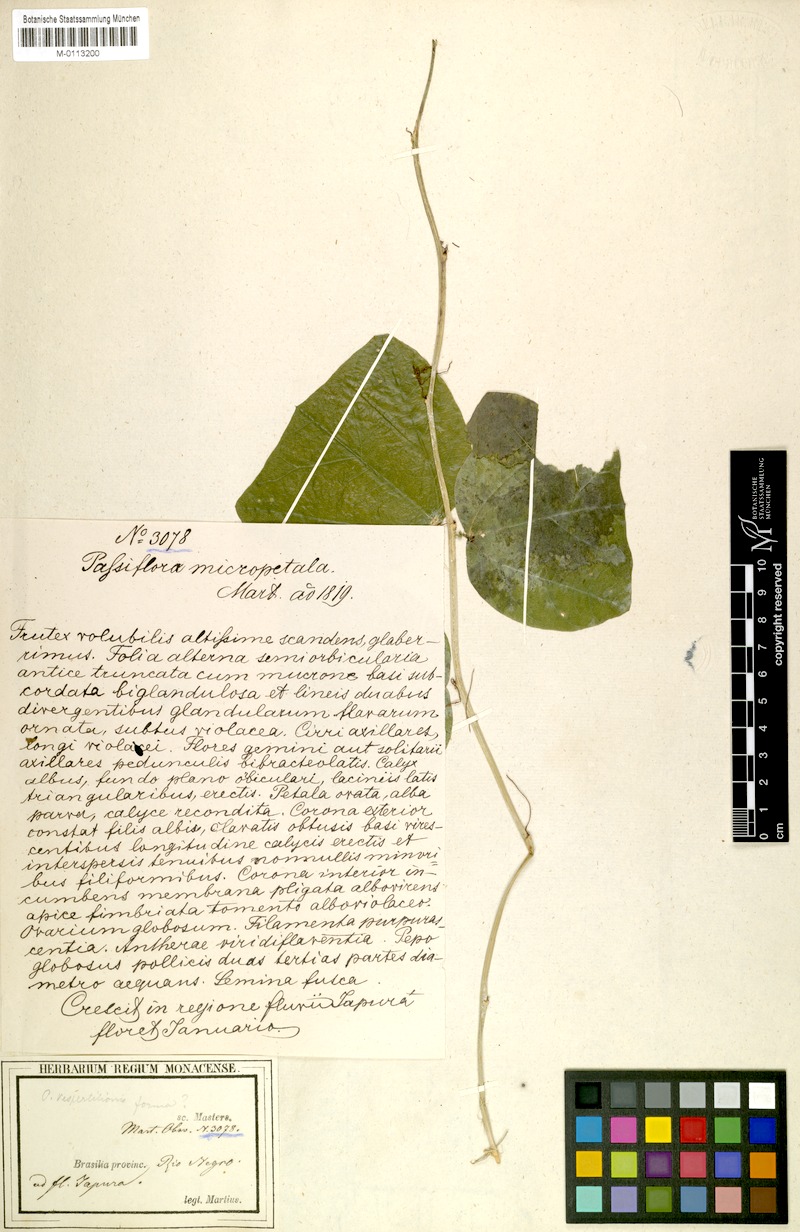 Botanische Staatssammlung München
M-0113200
No 3078
Passiflora micropetala.
Mart. aò 1819.
Frutex volubilis altissime scandens, glaber-
rimus. Folia alterna semiorbicularia
antice truncata cum mucrone basi sub-
cordata biglandulosa et lineis duabus
divergentibus glandularum flavarum
ornata, subtus violacea. Cirri axillares,
longi violacei. Flores gemini aut solitarii
axillares pedunculis bibracteolatis. Calyx
albus, fundo plano obiculari, laciniis latis
triangularibus, erectis. Petala ovata, alba
parva, calyce recondita. Corona exterior
constat filis albis, clavatis obtusis basi vires-
centibus longitudine calycis erectis et
interspersis tenuibus nonnullis minori=
bus filiformibus. Corona interior in-
cumbens membrana pligata albovirens
apice fimbriata tomento alboviolaceo.
Ovarium globosum. Filamenta purpuras-
centia. Antherae viridiflaventia. Pepo
globosus pollicis duas tertias partes dia-
metro aequans. Semina fusca.
Crescit in regione fluvii Japurá
floret Januario.
HERBARIUM REGIUM MONACENSE.
P. vespertilionis forma?
sc. Masters.
Mart. Obs. N. 3078.
Brasilia provinc. Rio Negro.
ad fl. Japura.
legt. Martius.
BOTANISCHE
STAATSSAMMLUNG
MÜNCHEN
0 1 2 3 4 5 6 7 8 9 10
cm
copyright reserved